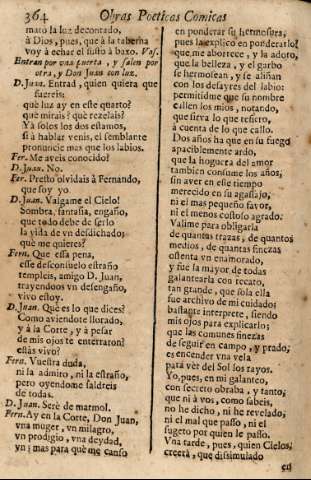 364 Obras Poeticas Comicas
mato la luz decontado,
à Dios, pues, que à la taberna
voy à echar el susto à baxo. Vas.
Entran por una puerta, y salen por
otra, y Don Juan con luz.
D. Juan. Entrad, quien quiera que
fuereis:
què luz ay en este quarto?
què mirais? què rezelais?
Yà solos los dos estamos,
si à hablar venis, el semblante
pronuncie mas que los labios.
Fer. Me aveis conocido?
D. Juan. No.
Fer. Presto olvidais à Fernando,
que soy yo
D. Juan. Valgame el Cielo!
Sombra, fantasia, engaño,
que todo debe de serlo
la vida de vn desdichado;
què me quieres?
Fern. Que essa pena,
esse desconsuelo estraño
templeis, amigo D. Juan,
trayendoos vn desengaño,
vivo estoy.
D. Juan. Què es lo que dices?
Como aviendote llorado,
y à la Corte, y à pesar
de mis ojos te enterraron!
estàs vivo?
Fern. Vuestra duda,
ni la admiro, ni la estraño,
pero oyendome saldreis
de todas.
D. Juan. Serè de marmol.
Fern. Ay en la Corte, Don Juan,
vna muger, vn milagro,
vn prodigio, vna deydad,
yn; mas para què me canso
en ponderar su hermosura,
pues la explico en ponderarlo!
que me aborrece, y la adoro,
que la belleza, y el garbo
se hermosean, y se aliñan
con los desayres del labio:
permitidme que su nombre
callen los mios, notando,
que sirva lo que refiero,
à cuenta de lo que callo.
Dos años ha que en su fuego
apaciblemente ardo,
que la hoguera del amor
tambien consume los años;
sin aver en este tiempo
merecido en su agassajo,
ni el mas pequeño favor,
ni el menos costoso agrado.
Valime para obligarla
de quantas trazas, de quantos
medios, de quantas finezas
ostenta vn enamorado,
y fue la mayor de todas
galantearla con recato,
tan grande, que sola ella
fue archivo de mi cuidado;
bastante interprete, siendo
mis ojos para explicarlo;
que las comunes finezas
de seguir en campo, y prado,
es encender vna vela
para vèr del Sol los rayos.
Yo, pues, en mi galanteo,
con secreto obraba, y tanto,
que ni à vos, como sabeis,
no he dicho, ni he revelado,
ni el mal que passo, ni el
sugeto por quien le passo.
Vna tarde, pues, quien Cielos,
creerà, que dissimulado
en